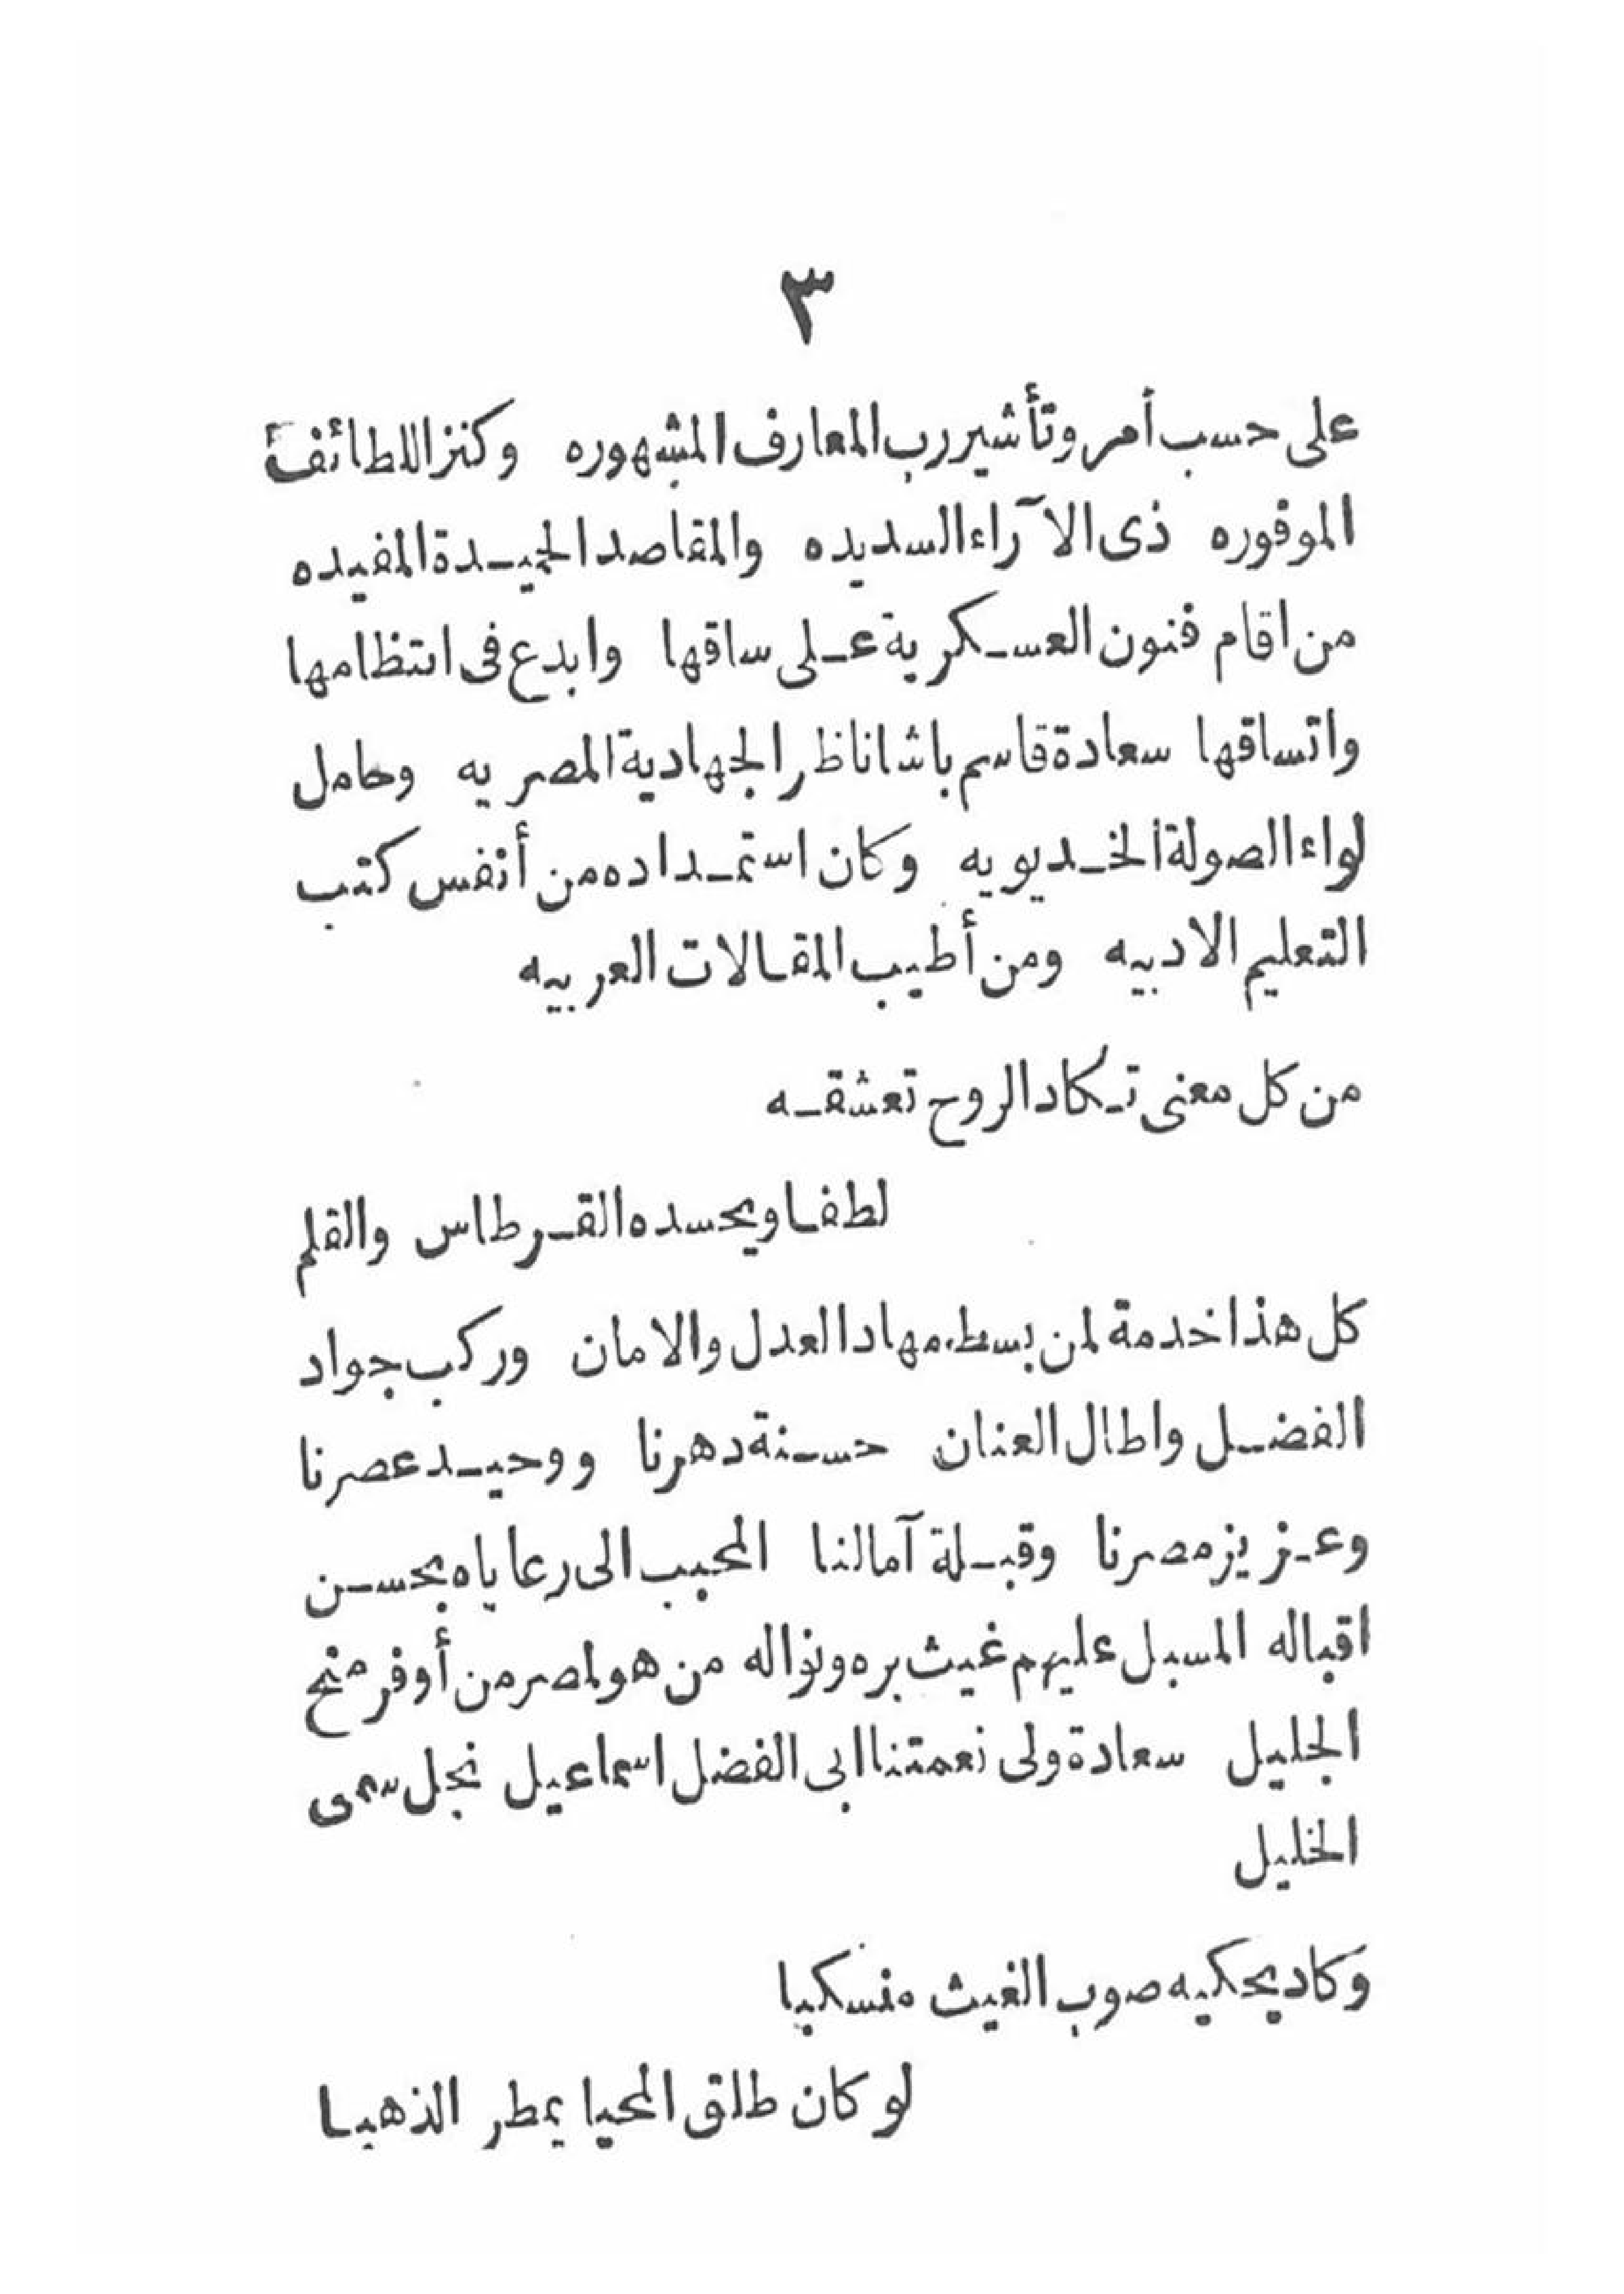 ٣
على حسب أمر وتأشير رب المعارف المشهوره وكنز اللطائف
الموفوره ذى الآراء السديده والمقاصد الحميدة المفيده
من اقام فنون العسكرية على ساقها وابدع فى انتظامها
واتساقها سعادة قاسم باشا ناظر الجهادية المصريه وحامل
لواء الصولة الخديويه وكان استمداده من أنفس كتب
التعليم الادبيه ومن أطيب المقالات العربيه
من كل معنى تكاد الروح تعشقه
لطفا ويحسده القرطاس والقلم
كل هذا خدمة لمن بسط مهاد العدل والامان وركب جواد
الفضل واطال العنان حسنة دهرنا ووحيد عصرنا
وعزيز مصرنا وقبلة آمالنا المحبب الى رعاياه بحسن
اقباله المسبل عليهم غيث بره ونواله من هو لمصر من أوفر منح
الجليل سعادة ولى نعمتنا ابى الفضل اسماعيل نجل سمى
الخليل
وكاد يحكيه صوب الغيث منسكبا
لو كان طلق المحيا يمطر الذهبا